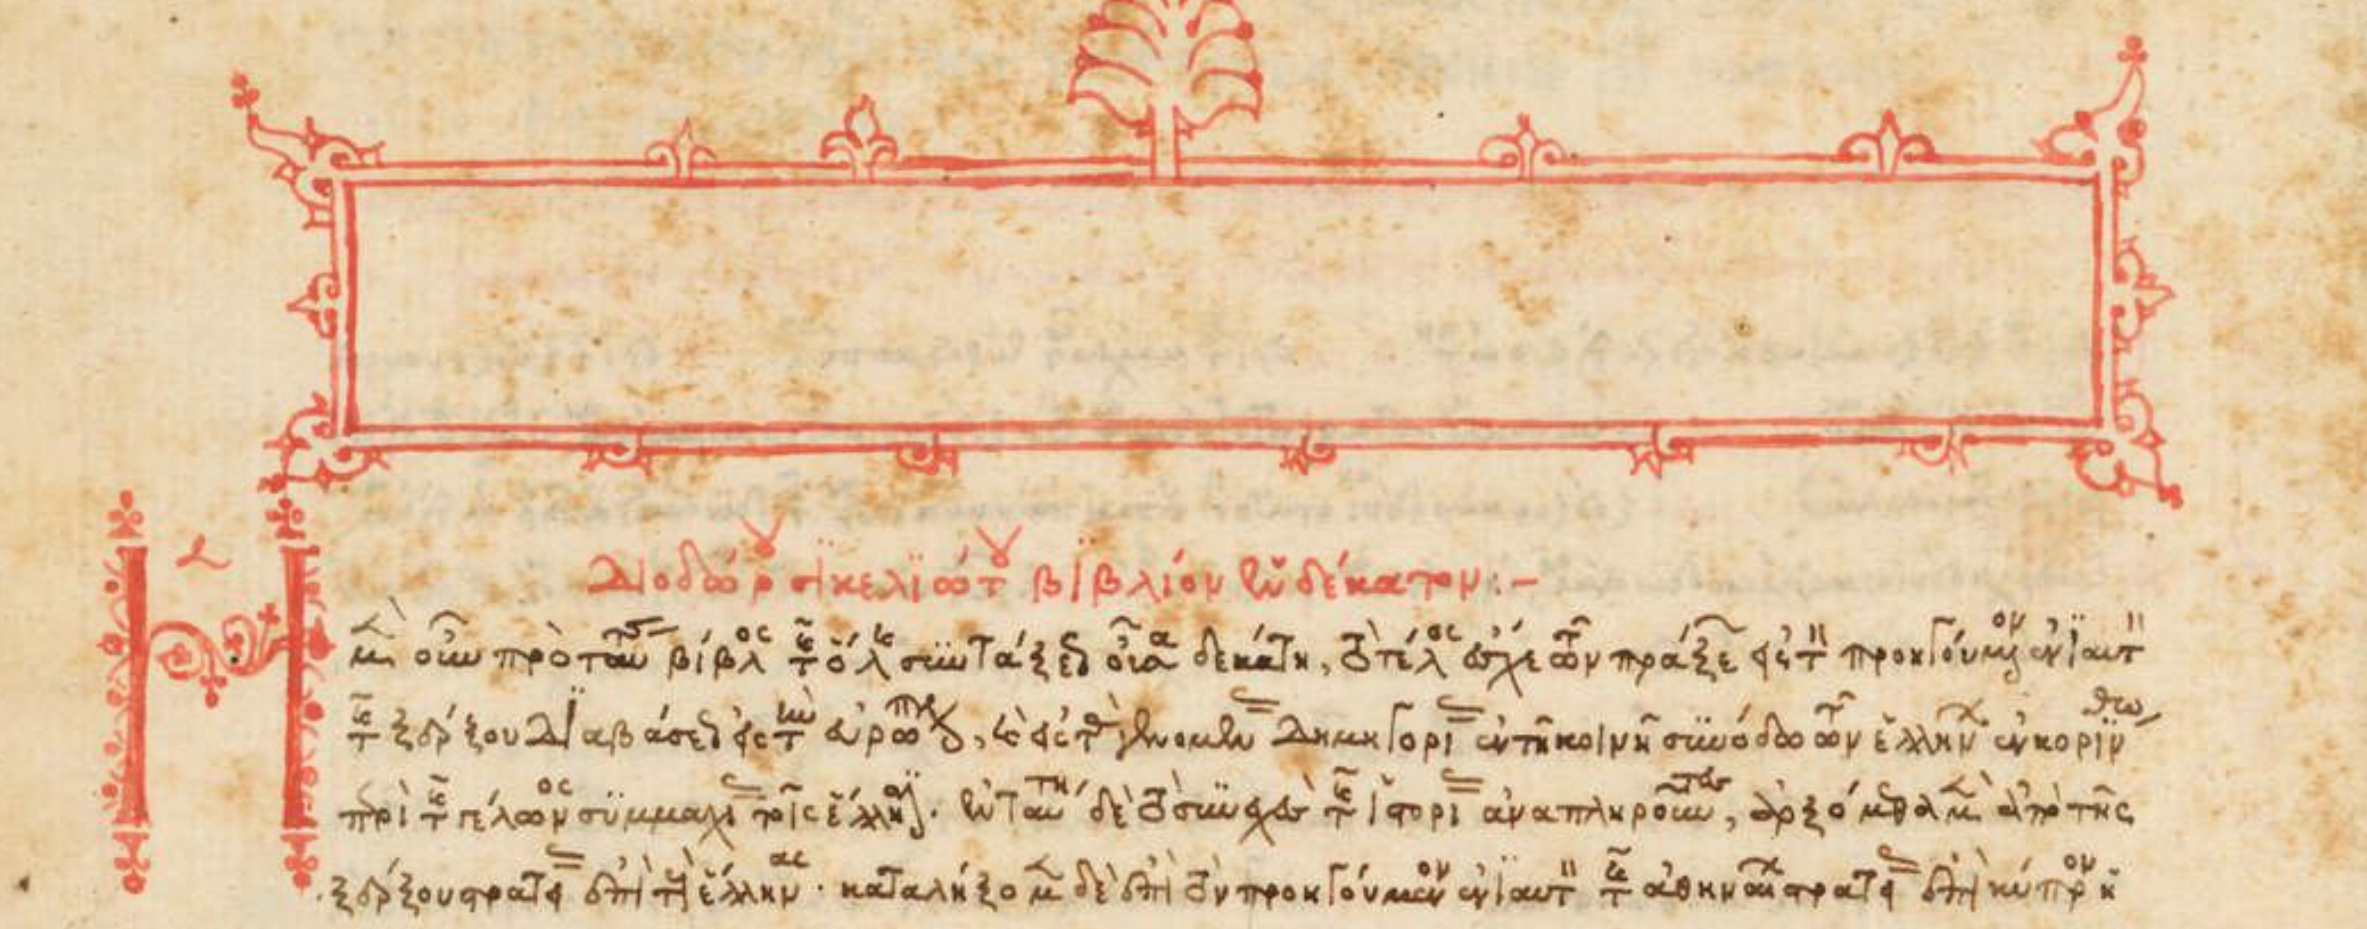 Διοδώρου σικελιώτου βιβλίον ἑνδέκατον:-
Ἡ μὲν οὖν πρὸ ταύτης βίβλος τῆς ὅλης συντάξεως οὖσα δεκάτη, τὸ τέλος ἔσχε τῶν πράξεων εἰς τὸν προηγούμενον ἐνιαυτὸν
τῆς ξέρξου διαβάσεως εἰς τὴν εὐρώπην, καὶ εἰς τὰς γενομένας δημηγορίας ἐν τῇ κοινῇ συνόδω τῶν ἑλλήνων ἐν κορίνθω
περὶ τῆς γέλωνος συμμαχίας τοῖς ἕλλησιν. ἐν ταύτη δὲ τὸ συνεχὲς τῆς ἱστορίας ἀναπληροῦντες, ἀρξόμεθα μὲν ἀπὸ τῆς
ξέρξου στρατείας ἐπὶ τοὺς ἕλληνας· καταλήξομεν δὲ ἐπὶ τὸν προηγούμενον ἐνιαυτὸν τῆς ἀθηναίων στρατείας ἐπὶ κύπρον